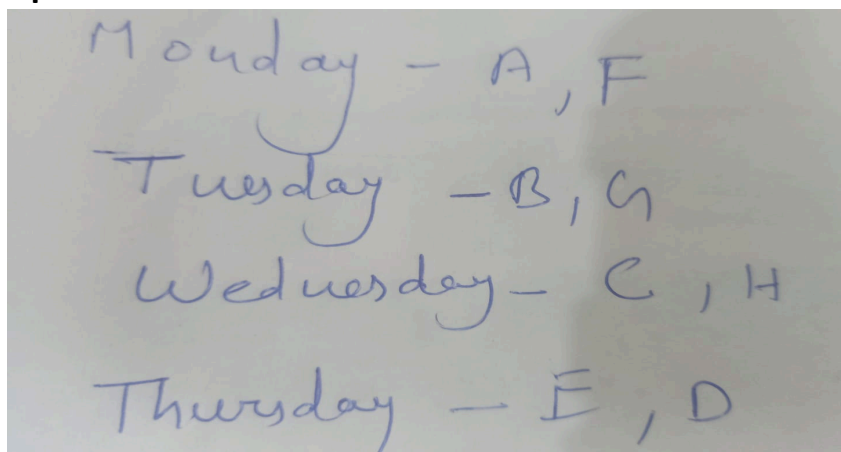 Monday - A, F
Tuesday - B, G
Wednesday - C, H
Thursday - E, D